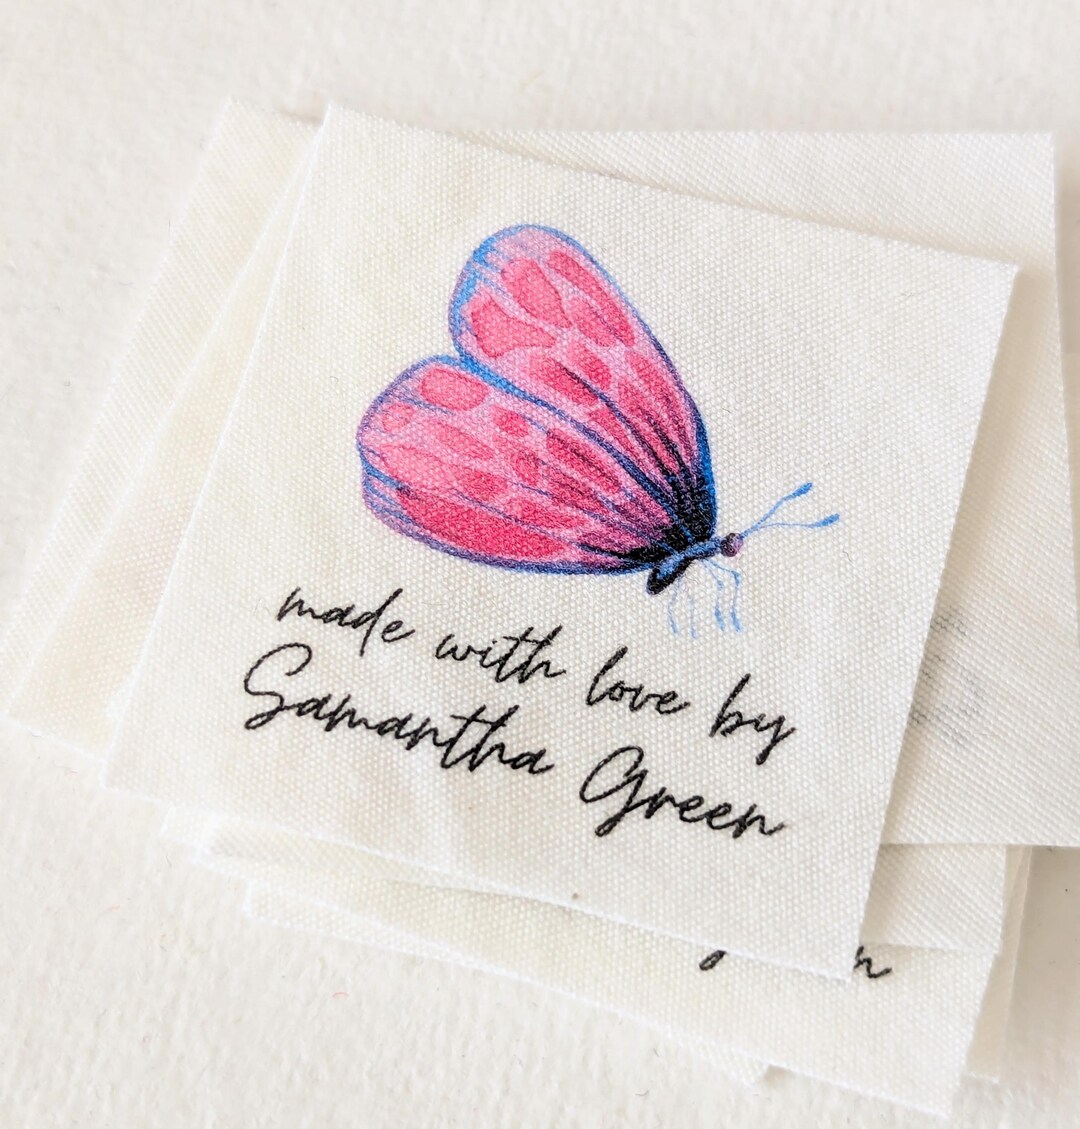 made with love by
Samantha Green